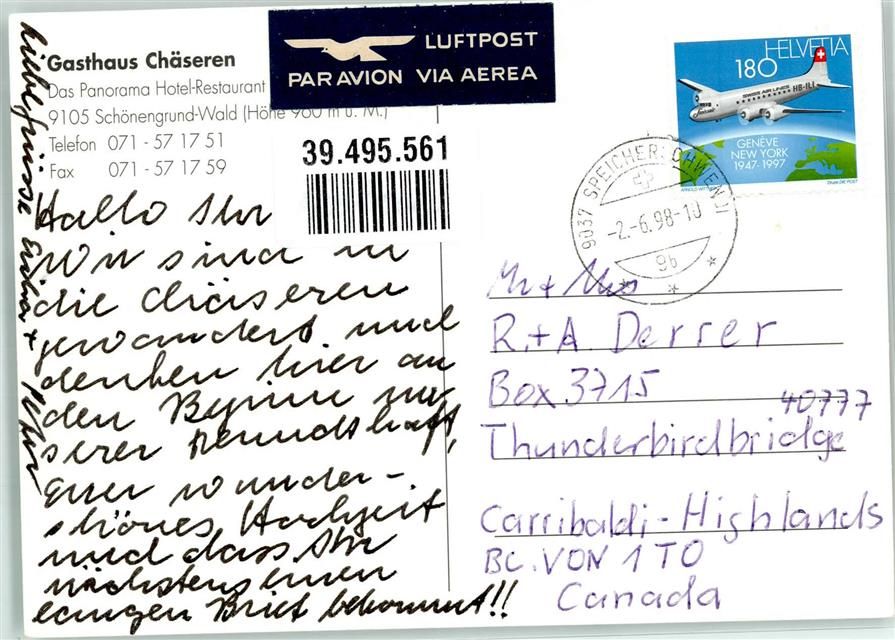 Gasthaus Chäseren
Das Panorama Hotel-Restaurant
9105 Schönengrund-Wald (Höhe 960 m ü. M.)
Telefon 071 - 57 17 51
Fax 071 - 57 17 59
LUFTPOST
PAR AVION VIA AEREA
39.495.561
HELVETIA
180
SWISS AIR LINES
HB-ILI
GENÈVE
NEW YORK
1947-1997
9037 SPEICHERSCHWENDI
-2.-6.98-10
9b
Hallo Ihr
Wir sind in
die Chäseren
gewandert und
denken hier an
den Beginn un
serer Freundschaft,
Euer wunder-
schönes Hochzeit
und dass Ihr
nächstens einen
langen Brief bekommt!!
Liebe Grüsse + Peter
Mr + Mrs
R. + A Derrer
Box 3715
40777
Thunderbirdbridge
Carribaldi-Highlands
BC. VON 1TO
Canada